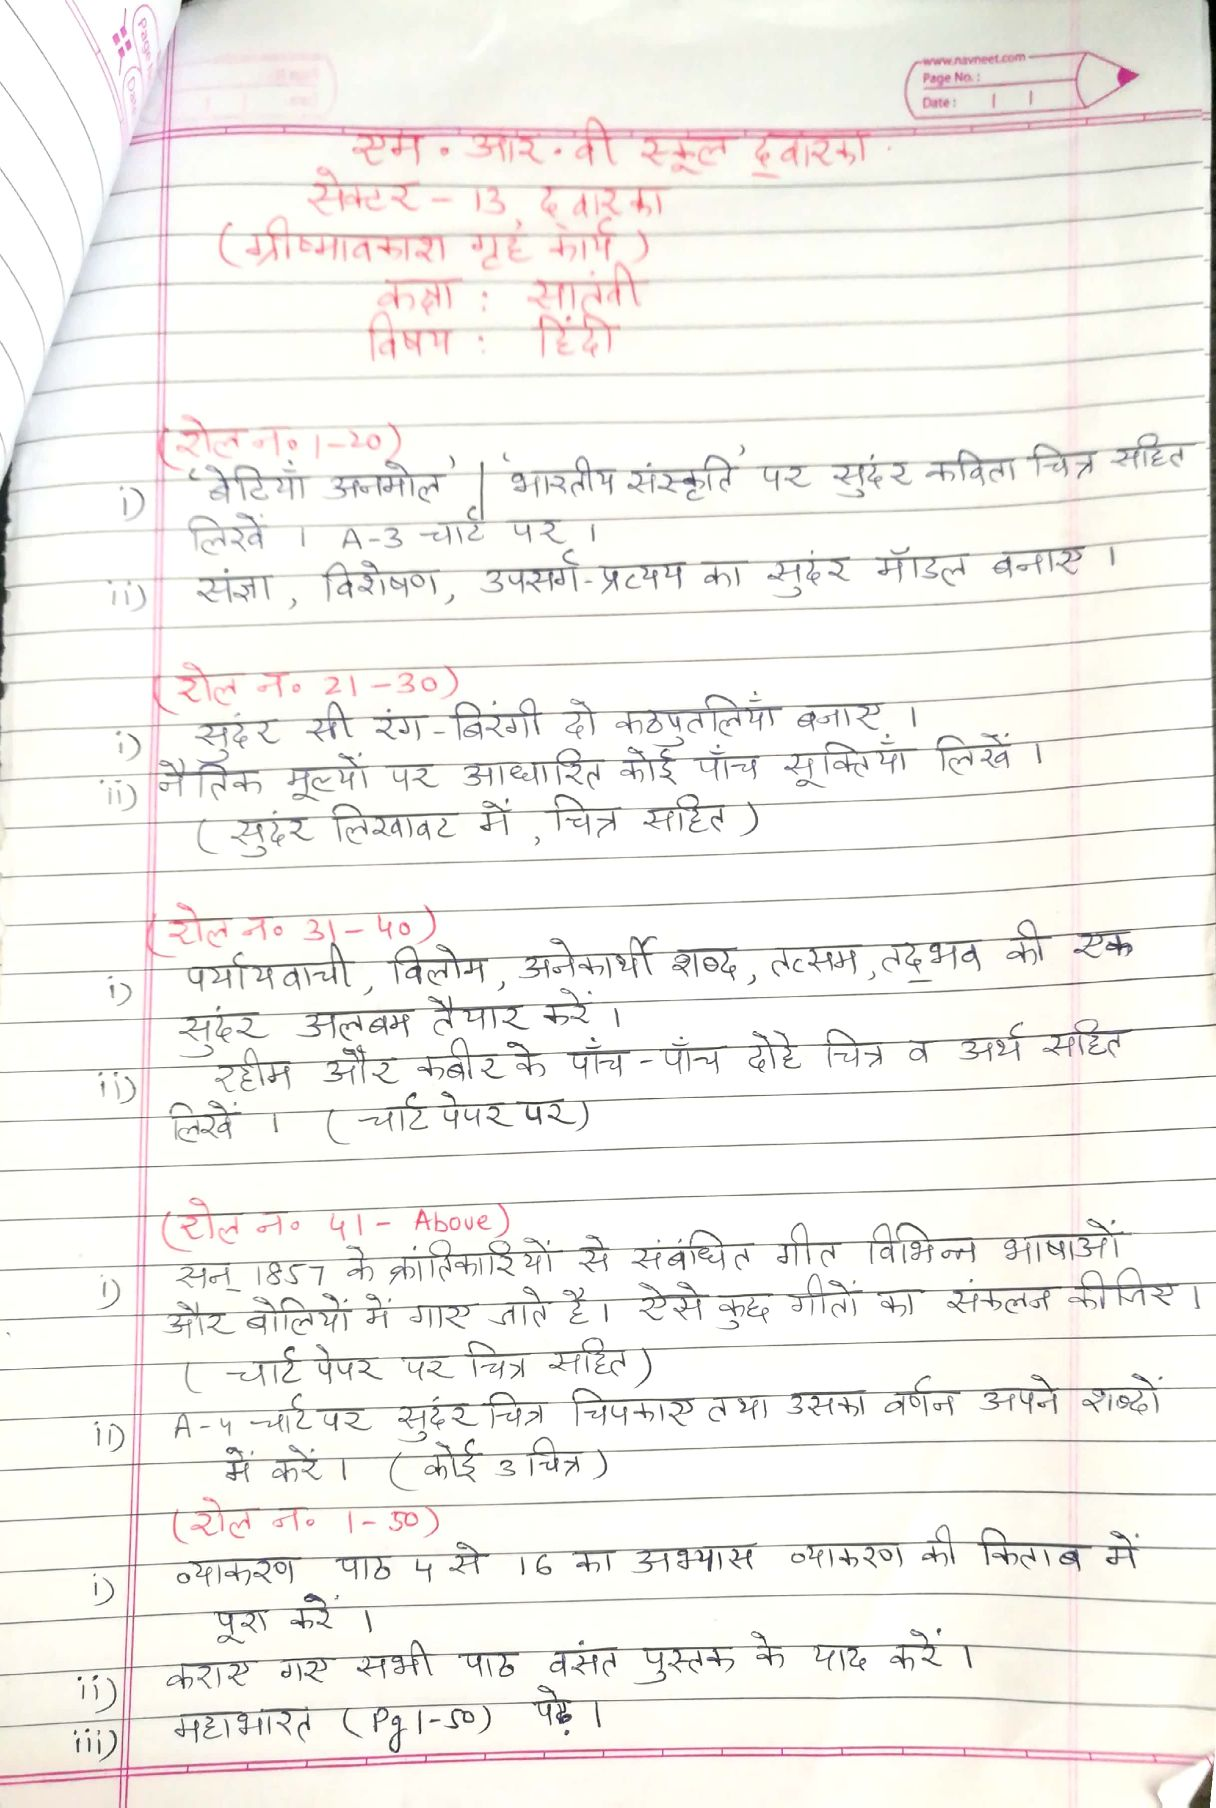 www.navneet.com
Page No. :
Date :
एम॰ आर॰ वी स्कूल द्वारका
सेक्टर - 13, द्वारका
(ग्रीष्मावकाश गृह कार्य)
कक्षा : सातंवी
विषय : हिंदी
(रोल न॰ 1-20)
i) 'बेटियाँ अनमोल' / 'भारतीय संस्कृति' पर सुदंर कविता चित्र सहित
लिखें । A-3 चार्ट पर ।
ii) संज्ञा, विशेषण, उपसर्ग-प्रत्यय का सुदंर मॉडल बनाए ।
(रोल न॰ 21-30)
i) सुदंर सी रंग-बिरंगी दो कठपुतलियाँ बनाए ।
ii) नैतिक मूल्यों पर आधारित कोई पाँच सूक्तियाँ लिखें ।
(सुदंर लिखावट में, चित्र सहित)
(रोल न॰ 31-40)
i) पर्यायवाची, विलोम, अनेकार्थी शब्द, तत्सम, तद्भव की एक
सुदंर अलबम तैयार करें ।
ii) रहीम और कबीर के पाँच-पाँच दोहे चित्र व अर्थ सहित
लिखें । (चार्ट पेपर पर)
(रोल न॰ 41- Above)
i) सन् 1857 के क्रांतिकारियों से संबंधित गीत विभिन्न भाषाओं
और बोलियों में गाए जाते है। ऐसे कुछ गीतों का संकलन कीजिए।
(चार्ट पेपर पर चित्र सहित)
ii) A-4 चार्ट पर सुदंर चित्र चिपकाए तथा उसका वर्णन अपने शब्दों
में करें । (कोई 3 चित्र)
(रोल न॰ 1-50)
i) व्याकरण पाठ 4 से 16 का अभ्यास व्याकरण की किताब में
पूरा करें ।
ii) कराए गए सभी पाठ वसंत पुस्तक के याद करें ।
iii) महाभारत (Pg 1-50) पढ़े ।